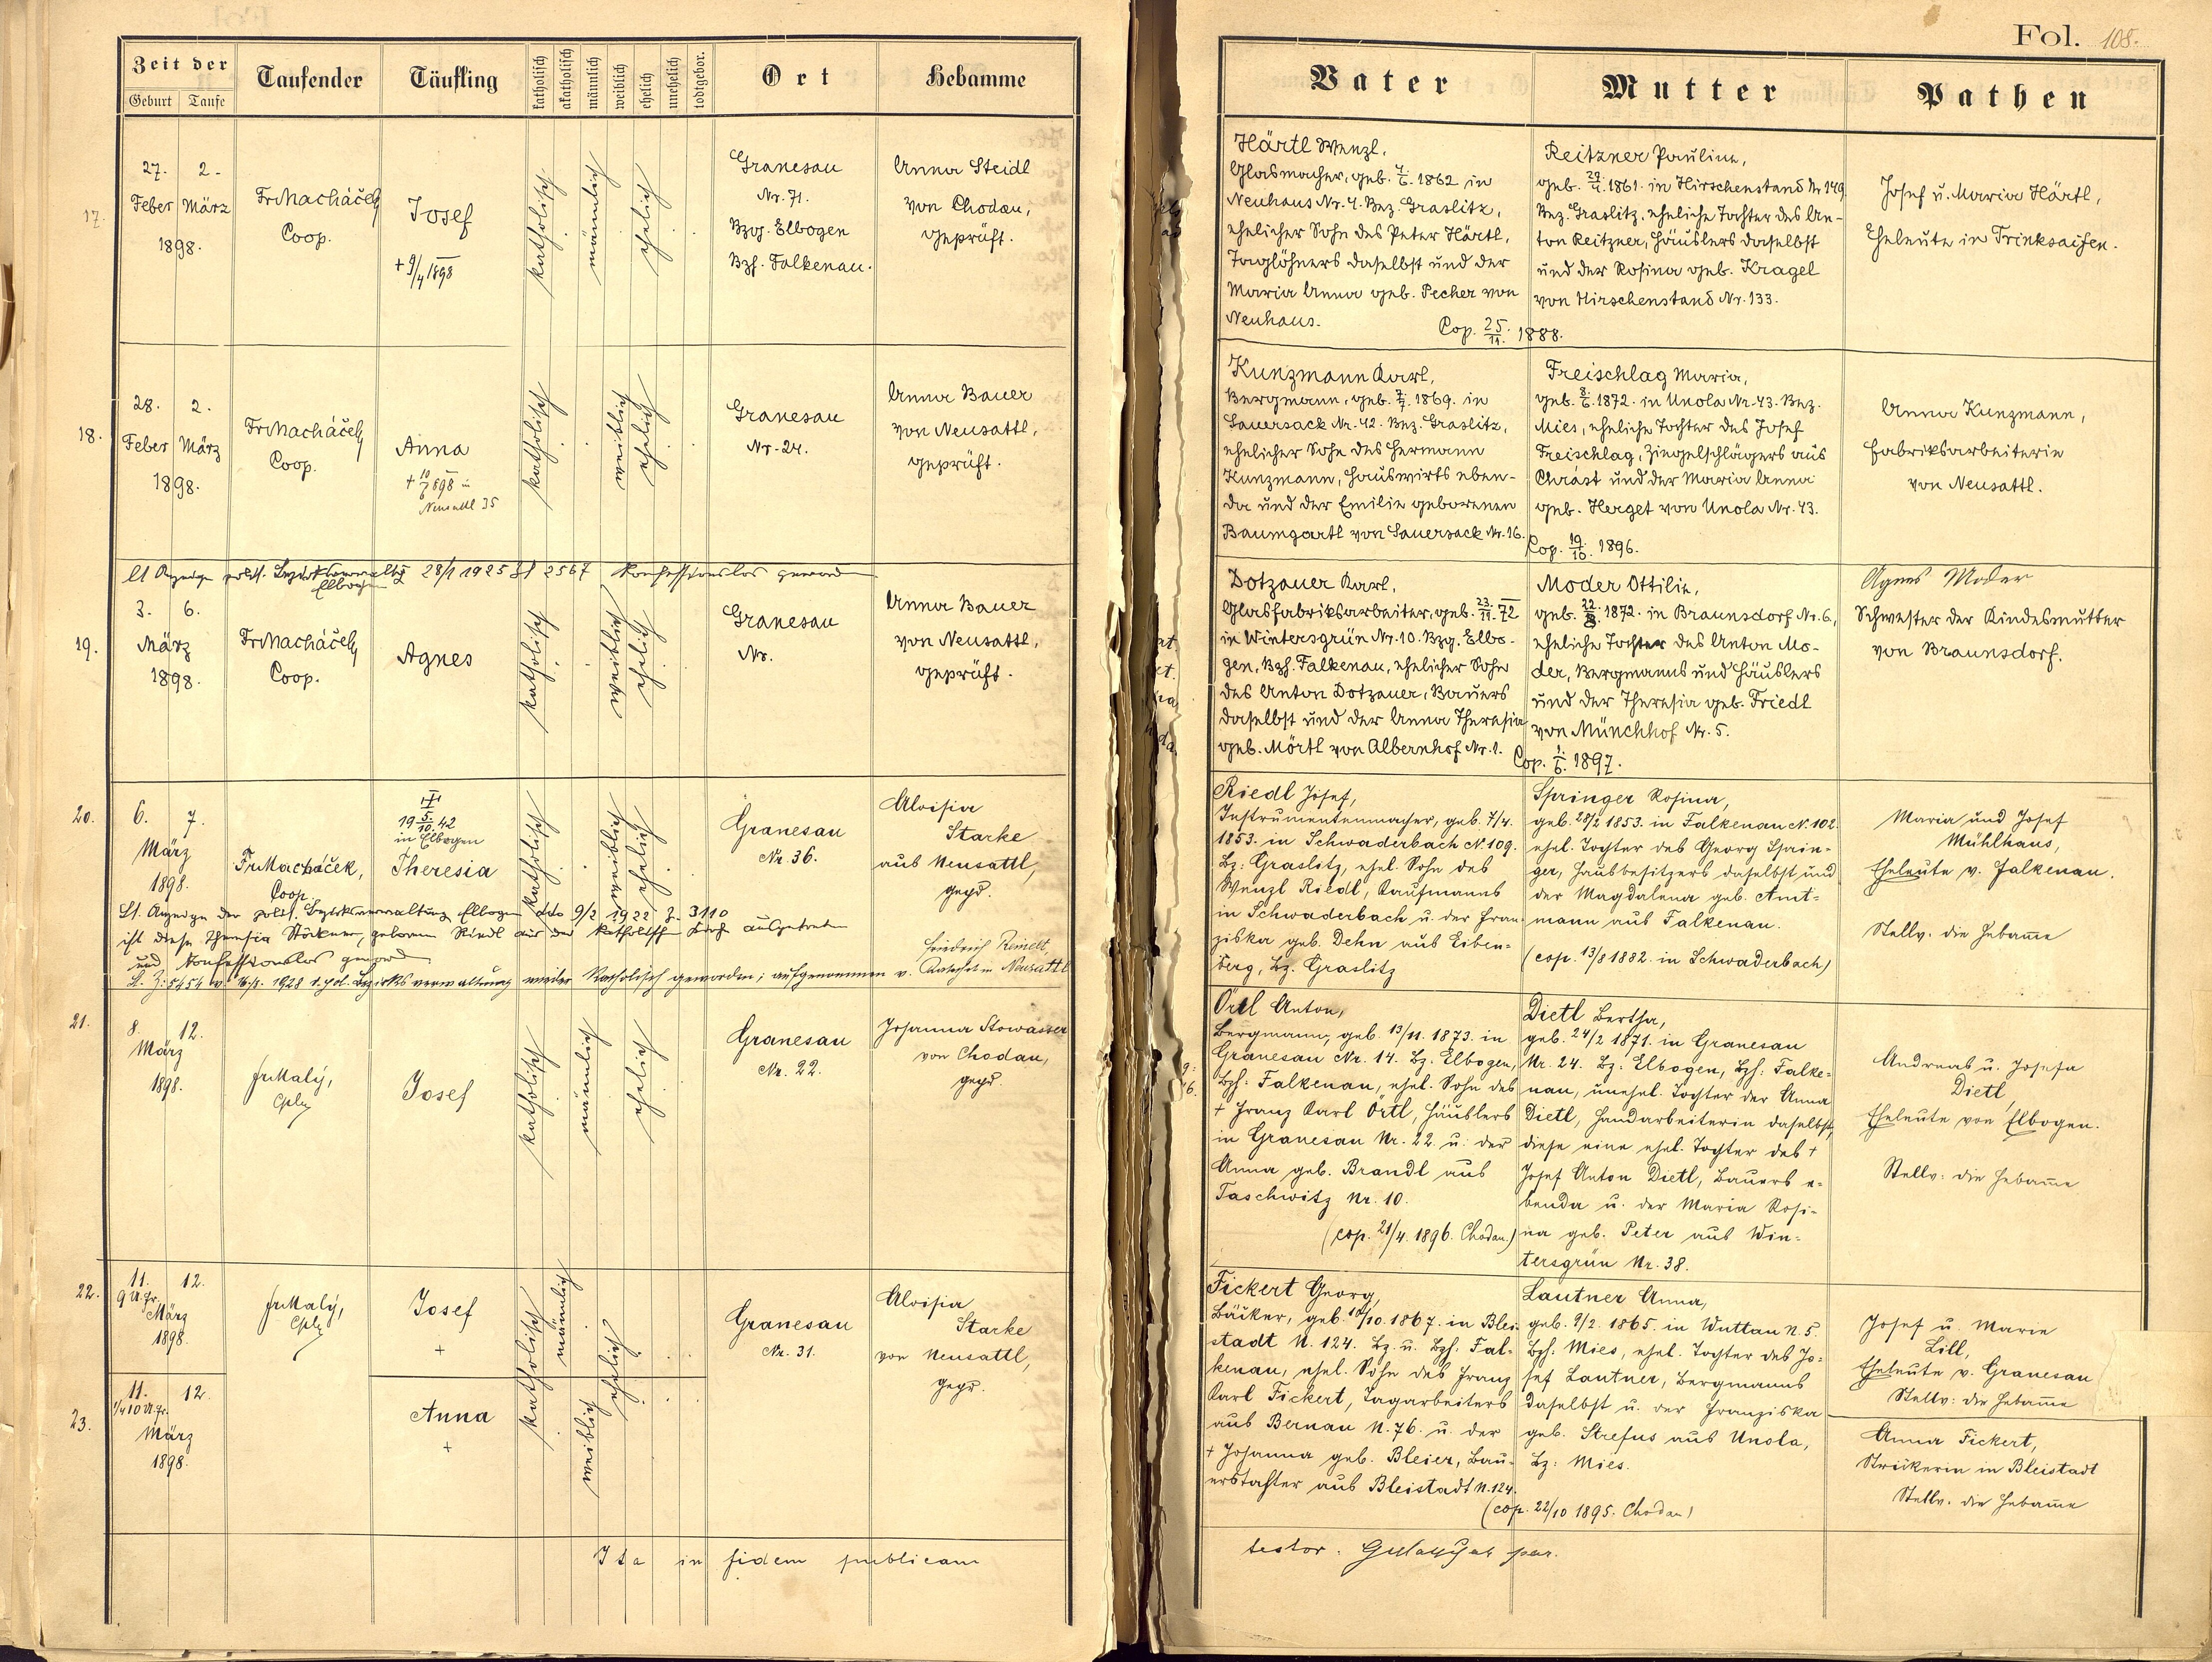 Zeit der
Geburt
Taufe
Taufender
Täufling
katholisch
akatholisch
männlich
weiblich
ehelich
unehelich
todtgebor.
Ort
Hebamme
17.
27.
2.
Feber
März
1898.
Fr Macháček
Coop.
Josef
+ 9/4 1898
katholisch
männlich
ehelich
Granesau
Nr. 71.
Bzg. Elbogen
Bzh. Falkenau.
Anna Steidl
von Chodau,
geprüft.
18.
28.
2.
Feber
März
1898.
Fr Macháček
Coop.
Anna
Neusattl 35
katholisch
weiblich
ehelich
Granesau
Nr. 24.
Anna Bauer
von Neusattl,
geprüft.
Lt Anzeige polit. Bezirksverwaltg 28/1 1925 Zl 2567 Konfessionslos geworden
Elbogen
19.
3.
6.
März
1898.
Fr Macháček
Coop.
Agnes
katholisch
weiblich
ehelich
Granesau
Nr.
Anna Bauer
von Neusattl,
geprüft.
20.
6.
7.
März
1898.
Fr Macháček,
Coop
19 5/10. 42
in Elbogen
Theresia
katholisch
weiblich
ehelich
Granesau
Nr. 36.
Aloisia
Starke
aus Neusattl,
gepr.
Lt. Anzeige der polit. Bezirksverwaltung Elbogen dto 9/2 1922 Z. 3110
ist diese Theresia geborene Riedl aus der katholischen Kirche ausgetreten
und Konfessionslos geword.
Friedrich Reinelt,
Z: 5454 v. 1928 d. pol. Bezirksverwaltung wieder Katholisch geworden; aufgenommen v. Katechet in Neusattl
21.
8.
12.
März
1898.
Fr Malý,
Cpln
Josef
katholisch
männlich
ehelich
Granesau
Nr. 22.
Johanna Stowasser
von Chodau,
gepr.
22.
11.
12.
9 U. fr.
März
1898.
Fr Malý,
Cpln
Josef
+
katholisch
männlich
ehelich
Granesau
Nr. 31.
Aloisia
Starke
von Neusattl,
gepr.
23.
11.
12.
1/4 10 U. fr.
März
1898.
Anna
+
weiblich
Ita in fidem publicam
Fol. 108.
Vater
Mutter
Pathen
Härtl Wenzl,
Glasmacher, geb. 1862 in
Neuhaus Nr. 4. Bez. Graslitz,
ehelicher Sohn des Peter Härtl,
Taglöhners daselbst und der
Maria Anna geb. Pecher von
Neuhaus.
Cop. 25./11. 1888.
Reitzner Pauline,
geb. 1861. in Hirschenstand Nr 149,
Bez. Graslitz, eheliche Tochter des An-
ton Reitzner, Häuslers daselbst
und der Rosina geb. Kragel
von Hirschenstand Nr. 133.
Josef u. Maria Härtl,
Eheleute in Trinksaifen.
Kunzmann Karl,
Bergmann, geb. 7./7. 1869. in
Sauersack Nr. 42. Bez. Graslitz,
ehelicher Sohn des Hermann
Kunzmann, Hauswirts eben-
da und der Emilie geborenen
Baumgartl von Sauersack Nr. 16.
Cop. 19./10. 1896.
Freischlag Maria,
geb. 8./6. 1872. in Unola Nr. 43. Bez.
Mies, eheliche Tochter des Josef
Freischlag, Ziegelschlägers aus
Chrást und der Maria Anna
geb. Herget von Unola Nr. 43.
Anna Kunzmann,
Fabriksarbeiterin
von Neusattl.
Dotzauer Karl,
Glasfabriksarbeiter, geb. 23./11. 72
in Wintersgrün Nr. 10. Bzg. Elbo-
gen, Bzh. Falkenau, ehelicher Sohn
des Anton Dotzauer, Bauers
daselbst und der Anna Theresia
geb. Mörtl von Albernhof Nr. 1.
Cop. 1./6. 1897.
Moder Ottilie,
geb. 1872. in Braunsdorf Nr. 6.,
eheliche Tochter des Anton Mo-
der, Bergmanns und Häuslers
und der Theresia geb. Friedl
von Münchhof Nr. 5.
Agnes Moder
Schwester der Kindesmutter
von Braunsdorf.
Riedl Josef,
Instrumentenmacher, geb. 7/4.
1853. in Schwaderbach N. 109.
Bz: Graslitz, ehel. Sohn des
Wenzl Riedl, Kaufmanns
in Schwaderbach u. der Fran-
ziska geb. Dehn aus Eiben-
berg, Bz. Graslitz
Springer Rosina,
geb. 28/2 1853. in Falkenau N. 102.
ehel. Tochter des Georg Sprin-
ger, Hausbesitzers daselbst und
der Magdalena geb. Amt-
mann aus Falkenau.
(cop. 13/8 1882. in Schwaderbach)
Maria und Josef
Mühlhaus,
Eheleute v. Falkenau.
Stellv. die Hebamme
Örtl Anton,
Bergmann, geb. 13/11. 1873. in
Granesau Nr. 14. Bz. Elbogen,
Bzh: Falkenau, ehel. Sohn des
+ Franz Karl Örtl, Häuslers
in Granesau Nr. 22 u. der
Anna geb. Brandl aus
Taschwitz Nr. 10.
(cop. 21/4. 1896. Chodau.)
Dietl Bertha,
geb. 24/2 1871. in Granesau
Nr. 24. Bz: Elbogen, Bzh: Falke-
nau, unehel. Tochter der Anna
Dietl, Handarbeiterin daselbst,
diese eine ehel. Tochter des +
Josef Anton Dietl, Bauers e-
benda u. der Maria Rosi-
na geb. Peter aus Win-
tersgrün Nr. 38.
Andreas u. Josefa
Dietl,
Eheleute von Elbogen.
Stellv: die Hebamme
Fickert Georg,
Bäcker, geb. 10/10. 1867. in Blei-
stadt N. 124. Bz. u. Bzh. Fal-
kenau, ehel. Sohn des Franz
Karl Fickert, Tagarbeiters
aus Bernau N. 76. u. der
+ Johanna geb. Bleier, Bau-
erstochter aus Bleistadt N. 124.
(cop. 22/10 1895. Chodau)
Lautner Anna,
geb. 9/2. 1865. in Wuttau N. 5.
Bzh. Mies, ehel. Tochter des Jo-
sef Lautner, Bergmanns
daselbst u. der Franziska
geb. Strefus aus Unola,
Bz: Mies.
Josef u. Marie
Lill,
Eheleute v. Granesau
Stellv: die Hebamme
Anna Fickert,
Strickerin in Bleistadt
Stellv. die Hebamme
testor: